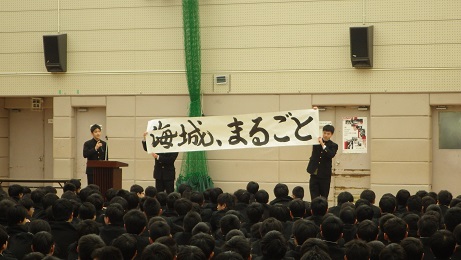 海城、まるごと